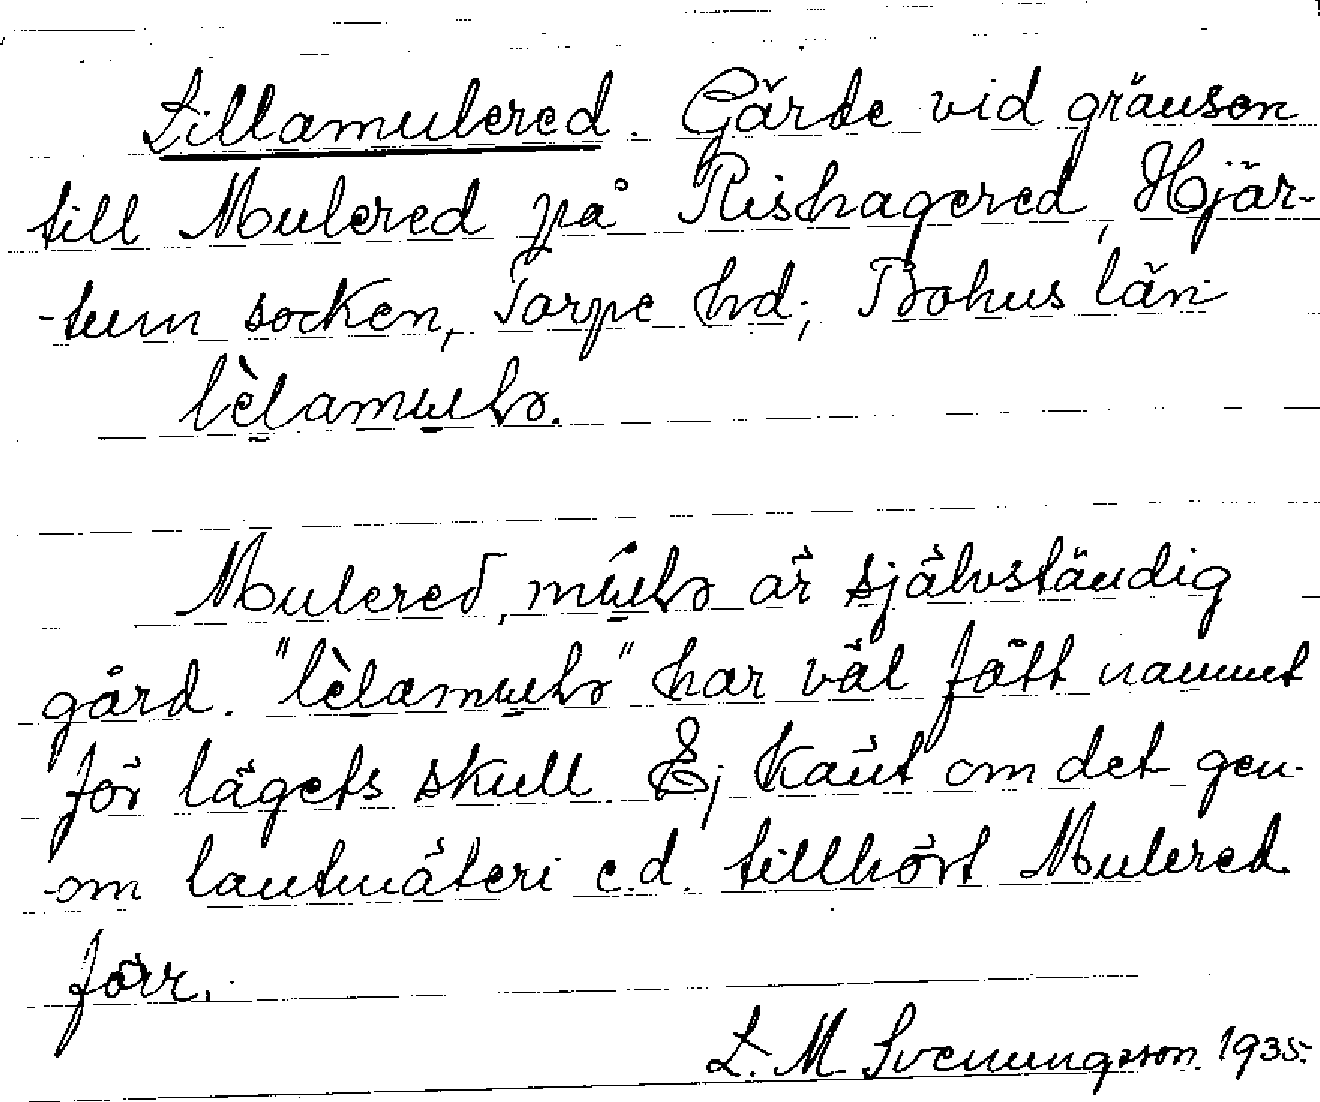 Lillamulered. Gärde vid gränsen
till Mulered på Rishagered, Hjär-
-tum socken, Torpe hd; Bohus län
lèlamɯlə.
Mulered, mɯ́lə är självständig
gård. "lèlamɯlə" har väl fått namnet
för lägets skull. Ej känt om det gen-
-om lantmäteri e.d. tillhört Mulered
förr.
L. M. Svenungsson 1935.